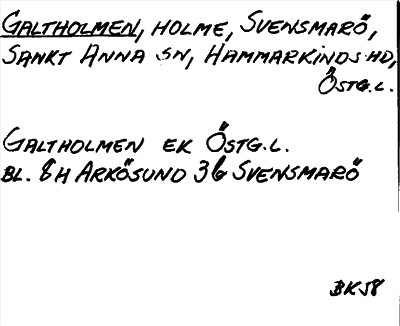 GALTHOLMEN, HOLME, SVENSMARÖ,
SANKT ANNA SN, HAMMARKINDS HD,
ÖSTG.L.
GALTHOLMEN EK ÖSTG.L.
BL. 8H ARKÖSUND 3b SVENSMARÖ
BK58